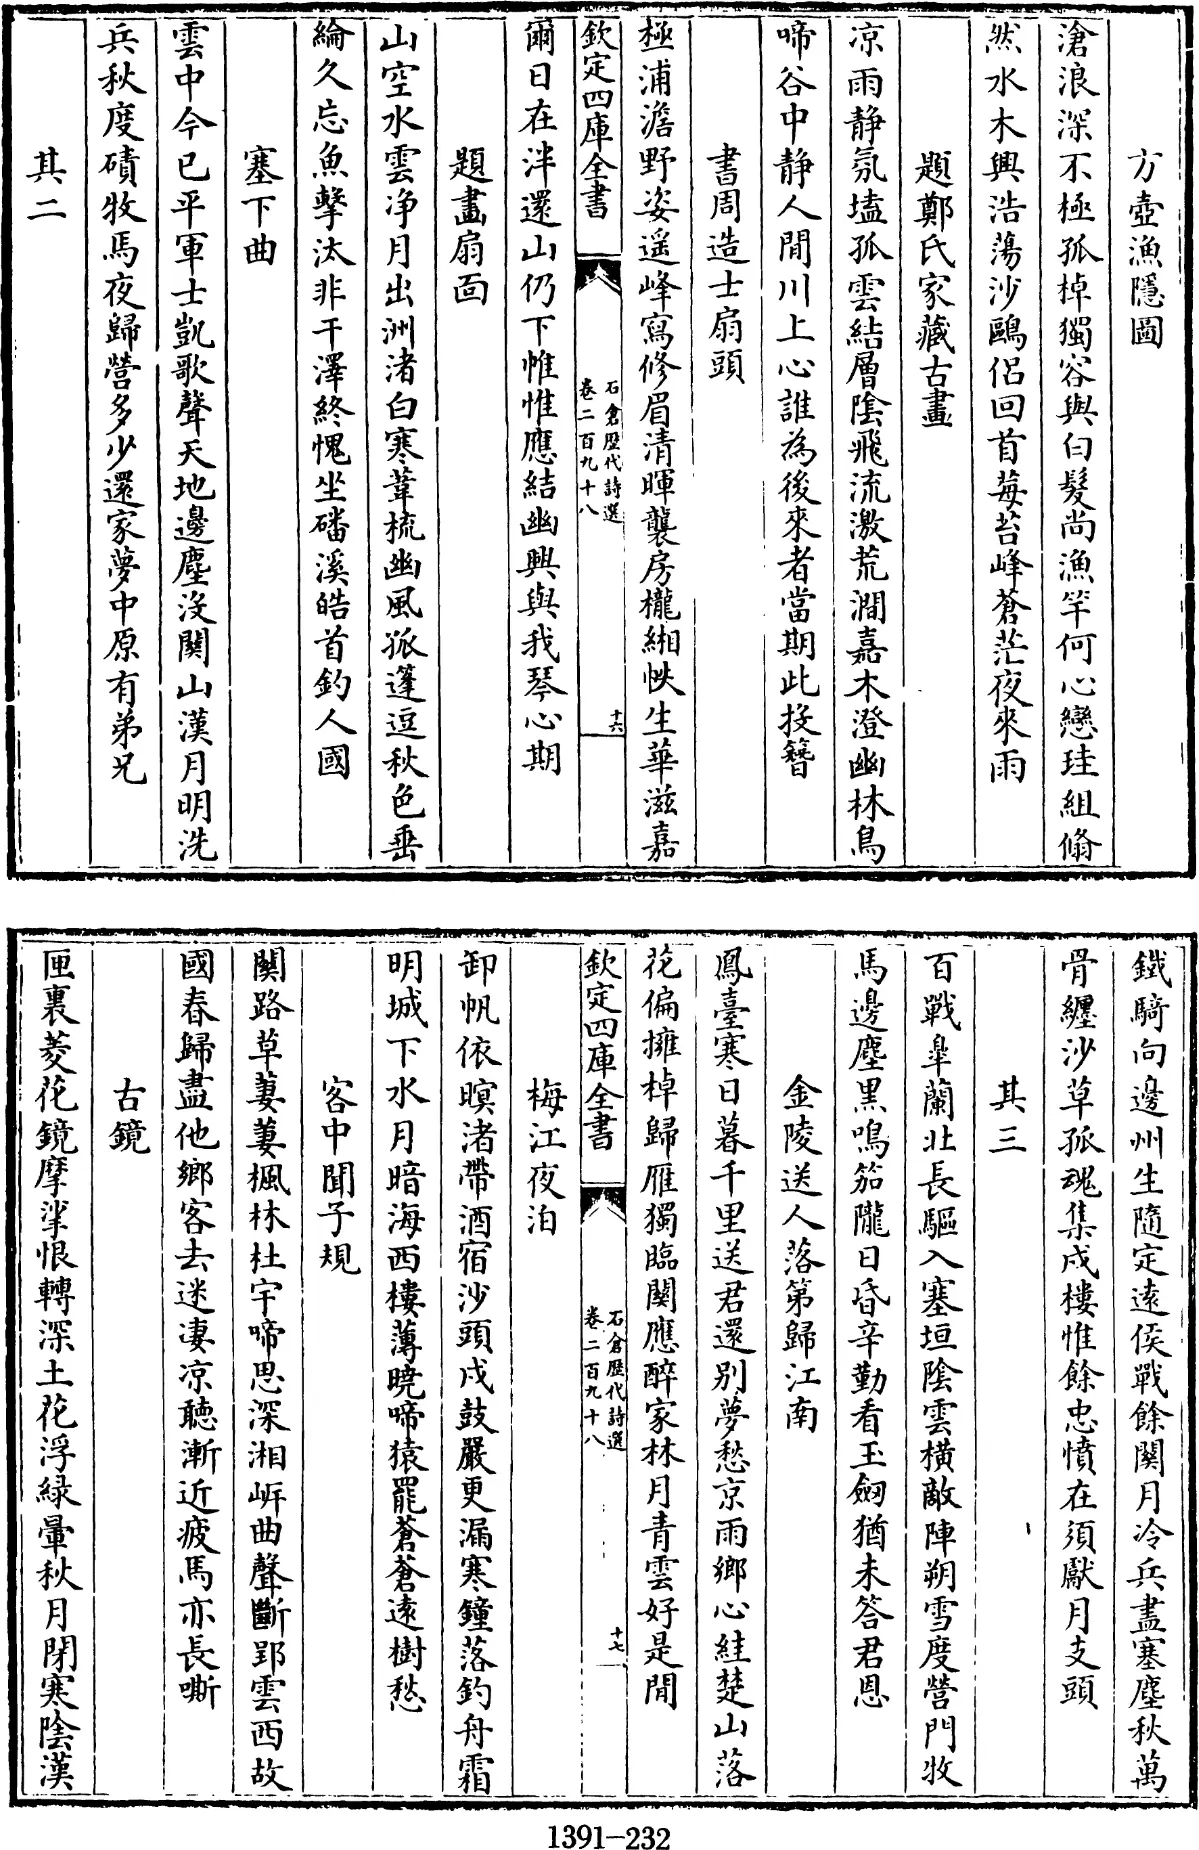 方壺漁隱圖
滄浪深不極孤棹獨容與白髮尚漁竿何心戀珪組翛
然水木興浩蕩沙鷗侣回首莓苔峰蒼茫夜來雨
題鄭氏家藏古畫
凉雨静氛壒孤雲結層陰飛流激荒澗嘉木澄幽林鳥
啼谷中静人閒川上心誰為後來者當期此投簪
書周造士扇頭
極浦澹野姿遥峰寫修眉清暉襲房櫳緗帙生華滋嘉
欽定四庫全書
石倉歷代詩選
卷二百九十八
十六
爾日在泮還山仍下帷惟應結幽興與我琴心期
題畫扇面
山空水雲净月出洲渚白寒葦梳幽風孤篷逗秋色垂
綸久忘魚擊汰非干澤終愧坐磻溪皓首釣人國
塞下曲
雲中今已平軍士凱歌聲天地邊塵没關山漢月明洗
兵秋度磧牧馬夜歸營多少還家夢中原有弟兄
其二
鐵騎向邊州生隨定遠侯戰餘關月冷兵盡塞塵秋萬
骨纏沙草孤魂集戍樓惟餘忠憤在須獻月支頭
其三
百戰臯蘭北長驅入塞垣陰雲横敵陣朔雪度營門牧
馬邊塵黒鳴笳隴日昏辛勤看玉劒猶未答君恩
金陵送人落第歸江南
鳳臺寒日暮千里送君還别夢愁京雨鄉心絓楚山落
花偏擁棹歸雁獨臨關應醉家林月青雲好是閒
欽定四庫全書
石倉歷代詩選
卷二百九十八
十七
梅江夜泊
卸帆依暝渚帶酒宿沙頭戍鼓嚴更漏寒鐘落釣舟霜
明城下水月暗海西樓薄曉啼猿罷蒼蒼遠樹愁
客中聞子規
關路草萋萋楓林杜宇啼思深湘岸曲聲斷郢雲西故
國春歸盡他鄉客去迷凄凉聽漸近疲馬亦長嘶
古鏡
匣裏菱花鏡摩挲恨轉深土花浮緑暈秋月閉寒陰漢
1391-232